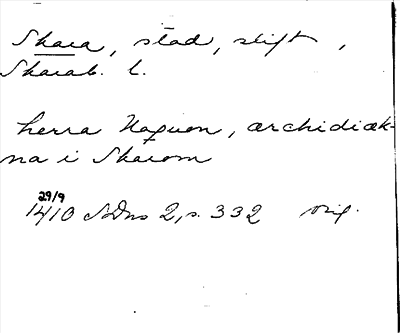 Skara, stad, stift,
Skarab. l.
herra Haquon, archidiæk-
na i Skarom
29/9
1410 SDns 2, s. 332 orig.